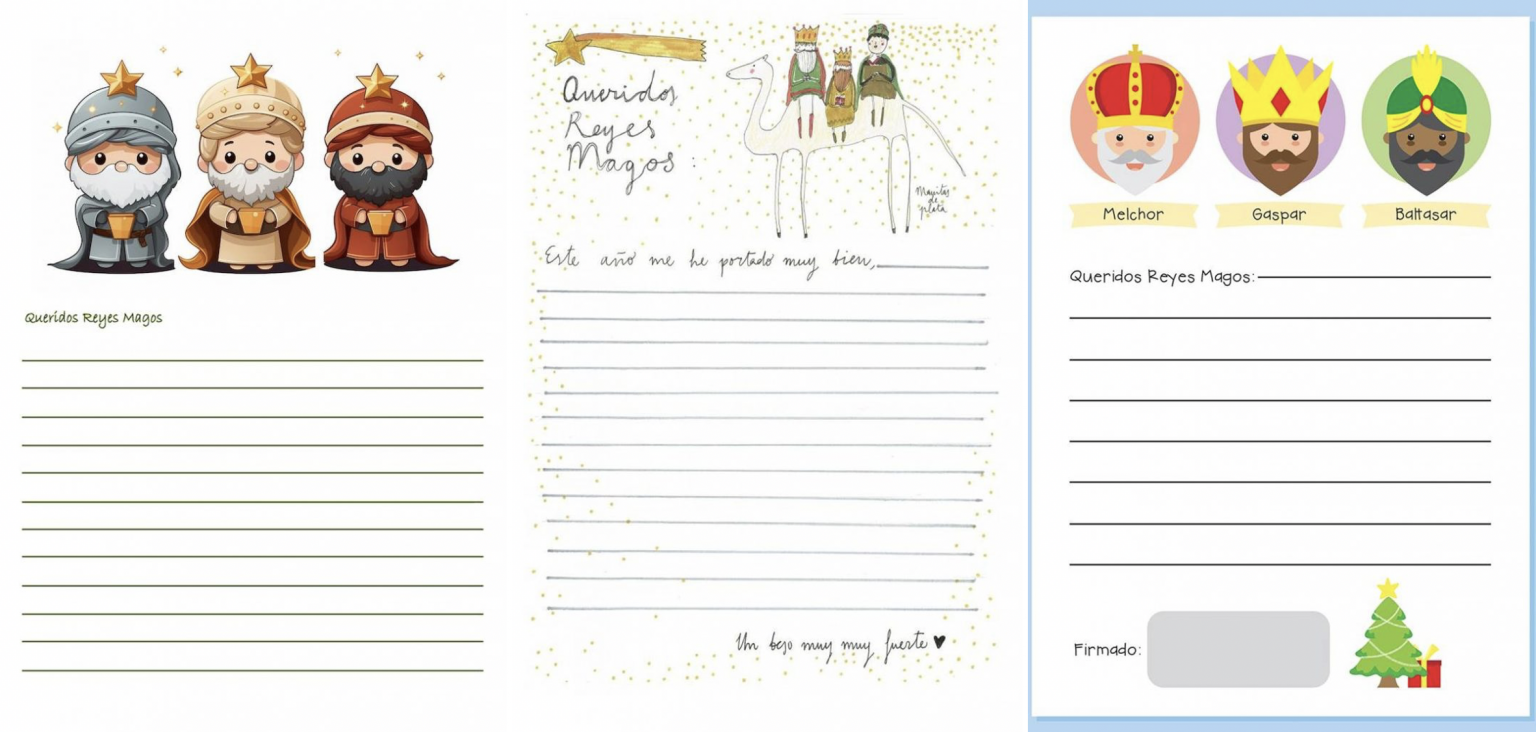 Queridos Reyes Magos
Queridos
Reyes
Magos:
Manitas
de
plata
Este año me he portado muy bien,
Un beso muy muy fuerte
Melchor
Gaspar
Baltasar
Queridos Reyes Magos:
Firmado: